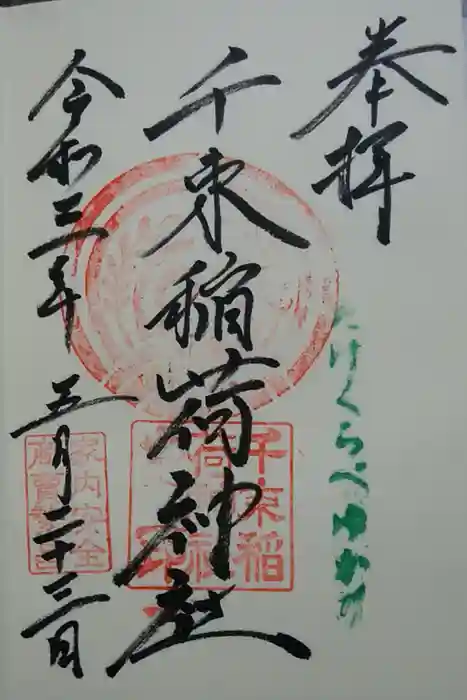 奉拝
たけくらべゆかり
千束稲荷神社
千束稲
荷神社
印
令和三年五月二十三日
家内安全
商売繁昌